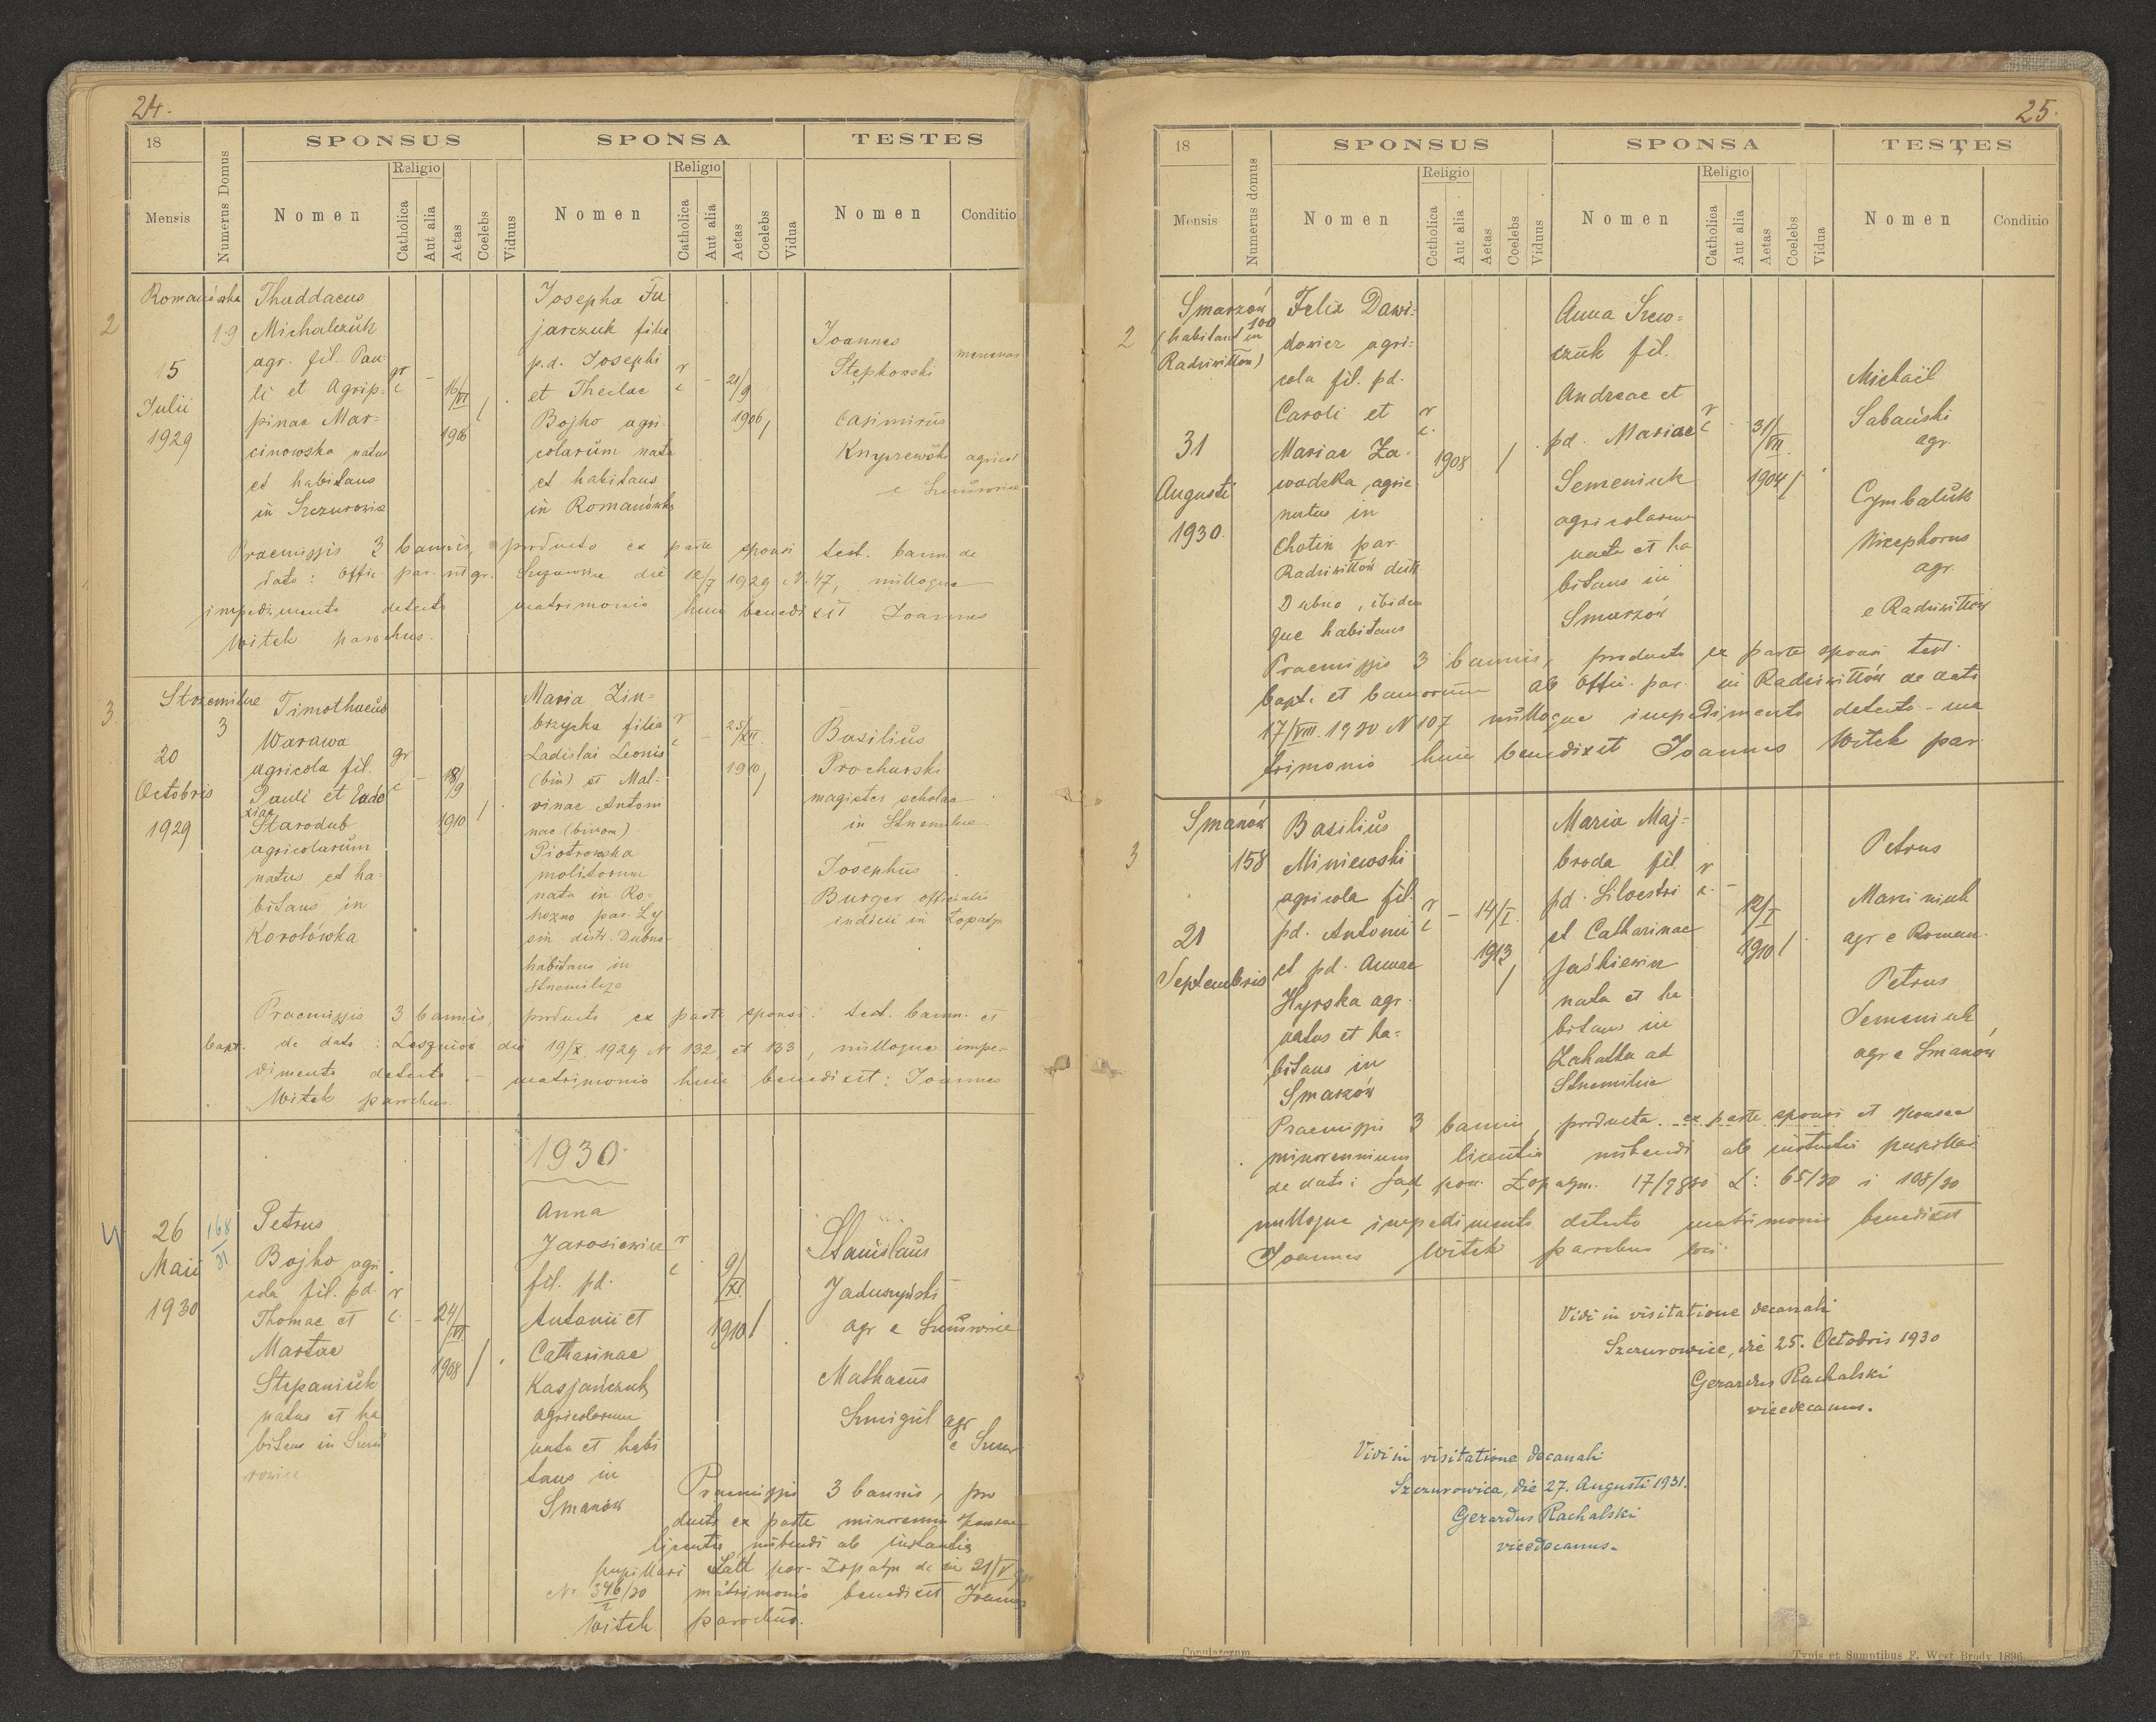 24.
18
Mensis
Numerus Domus
SPONSUS
Nomen
Religio
Catholica
Aut alia
Aetas
Coelebs
Viduus
SPONSA
Nomen
Religio
Catholica
Aut alia
Aetas
Coelebs
Vidua
TESTES
Nomen
Conditio
2
Romanówka
19
15
Julii
1929
Thaddaeus
Michalczuk
agr. fil. Pau-
li et Agrip-
pinae Mar-
cinowska natus
et habitans
in Szczurowice
gr
c
16/VI
1906
Josepha Fu
jarczuk filia
p.d. Josephi
et Theclae
Bojko agri-
colarum nata
et habitans
in Romanówka
r
c
21/9
1906
Joannes
Stępkowski
Casimirus
Knyszewski agricol
e Szczurowice
Praemissis 3 bannis, producto ex parte sponsi test. bann. de
dato: Offic. par. rit gr. Szczurowice die 12/7 1929 N. 47, nulloque
impedimento detecto matrimonio huic benedixit Joannes
Witek parochus.
3.
Strzemilcze
3
20
Octobris
1929
Timothaeus
Warawa
agricola fil.
Pauli et Eudo
xiae
Starodub
agricolarum
natus et ha-
bitans in
Korolówka
gr
c
18/9
1910
Maria Zin-
brzycka filia
Ladislai Leonis
(bin) et Mal-
vinae Antoni
nae (binom)
Piotrowska
molitorum
nata in Ro-
hozno par. Ły
sin distr. Dubno-
habitans in
Strzemilcze
r
c
25/XII
1910
Basilius
Prochurski
magister scholae
in Strzemilcze
Josephus
Burger officialis
iudicii in Łopatyn
Praemissis 3 bannis, producto ex parte sponsi: test. bann. et
bapt. de dato: Leszniow die 19/X 1929 N 132 et 133, nulloque impe-
dimento detecto - matrimonio huic benedixit: Joannes
Witek parochus.
1930
4
26
Maii
1930
168
31
Petrus
Bojko agri
cola fil. pd.
Thomae et
Martae
Stepaniuk
natus et ha
bitans in Szczu
rowice
r
c.
24/VI
1908
Anna
Jarosiewicz
fil. pd.
Antonii et
Catharinae
Kasjańczuk
agricolarum
nata et habi
tans in
Smarzów
r
c
9/XI
1910
Stanislaus
Jaduszyński
agr e Szczurowice
Mathaeus
Smigul agr
e Szczur
Praemissis 3 bannis, pro
ducta ex parte minorennis sponsae
licentia nubendi ab instantia
pupillari Sąd pow. Łopatyn de die 21/V
Nr 346/30 matrimonio benedixit Joannes
2
Witek parochus.
25.
18
Mensis
Numerus domus
SPONSUS
Nomen
Religio
Catholica
Aut alia
Aetas
Coelebs
Viduus
SPONSA
Nomen
Religio
Catholica
Aut alia
Aetas
Coelebs
Vidua
TESTES
Nomen
Conditio
2
Smarzów
100
(habitant in
Radziwiłłów)
31
Augusti
1930.
Felix Dawi-
dowicz agri-
cola fil. pd.
Caroli et
Mariae Za-
wadzka agric
natus in
Chotin par.
Radziwiłłów distr
Dubno, ibidem
que habitans
r
c.
1908
Anna Szew-
czuk fil.
Andreae et
pd. Mariae
Semeniuk
agricolarum
nata et ha
bitans in
Smarzów
r
c
31/VII
1904
Michaël
Sabański
agr
Cymbaluk
Nicephorus
agr.
e Radziwiłłów
Praemissis 3 bannis, producto ex parte sponsi test.
bapt. et bannorum ab Offic. par. in Radziwiłłów de dato
17/VIII. 1930 N 107 nulloque impedimento detecto - ma
trimonio huic benedixit Joannes Witek par.
3
Smarzów
158
21
Septembris
Basilius
Miniewski
agricola fil.
pd. Antonii
et pd. Annae
Hyrska agr.
natus et ha-
bitans in
Smarzów
r
c
14/I
1913
Maria Maj-
broda fil
pd. Silvestri
et Catharinae
Jaśkiewicz
nata et ha
bitans in
Zahatka ad
Strzemilcze
r
c.
12/I
1910
Petrus
Marciniuk
agr e Roman.
Petrus
Semeniuk
agr e Smarzów
Praemissis 3 bannis, producta ex parte sponsi et sponsae
minorennium licentia nubendi ab instantia pupillari
de dato: Sąd pow. Łopatyn. 17/9 930 L: 65/30 i 108/30
nulloque impedimento detecto matrimonio benedixit
Joannes Witek parochus loci.
Vidi in visitatione decanali
Szczurowice, die 25. Octobris 1930
Gerardus Rachalski
vicedecanus.
Vidi in visitatione decanali
Szczurowice, die 27. Augusti 1931.
Gerardus Rachalski
vicedecanus.
Copulatorum
Typis et Sumptibus F. West Brody 1896